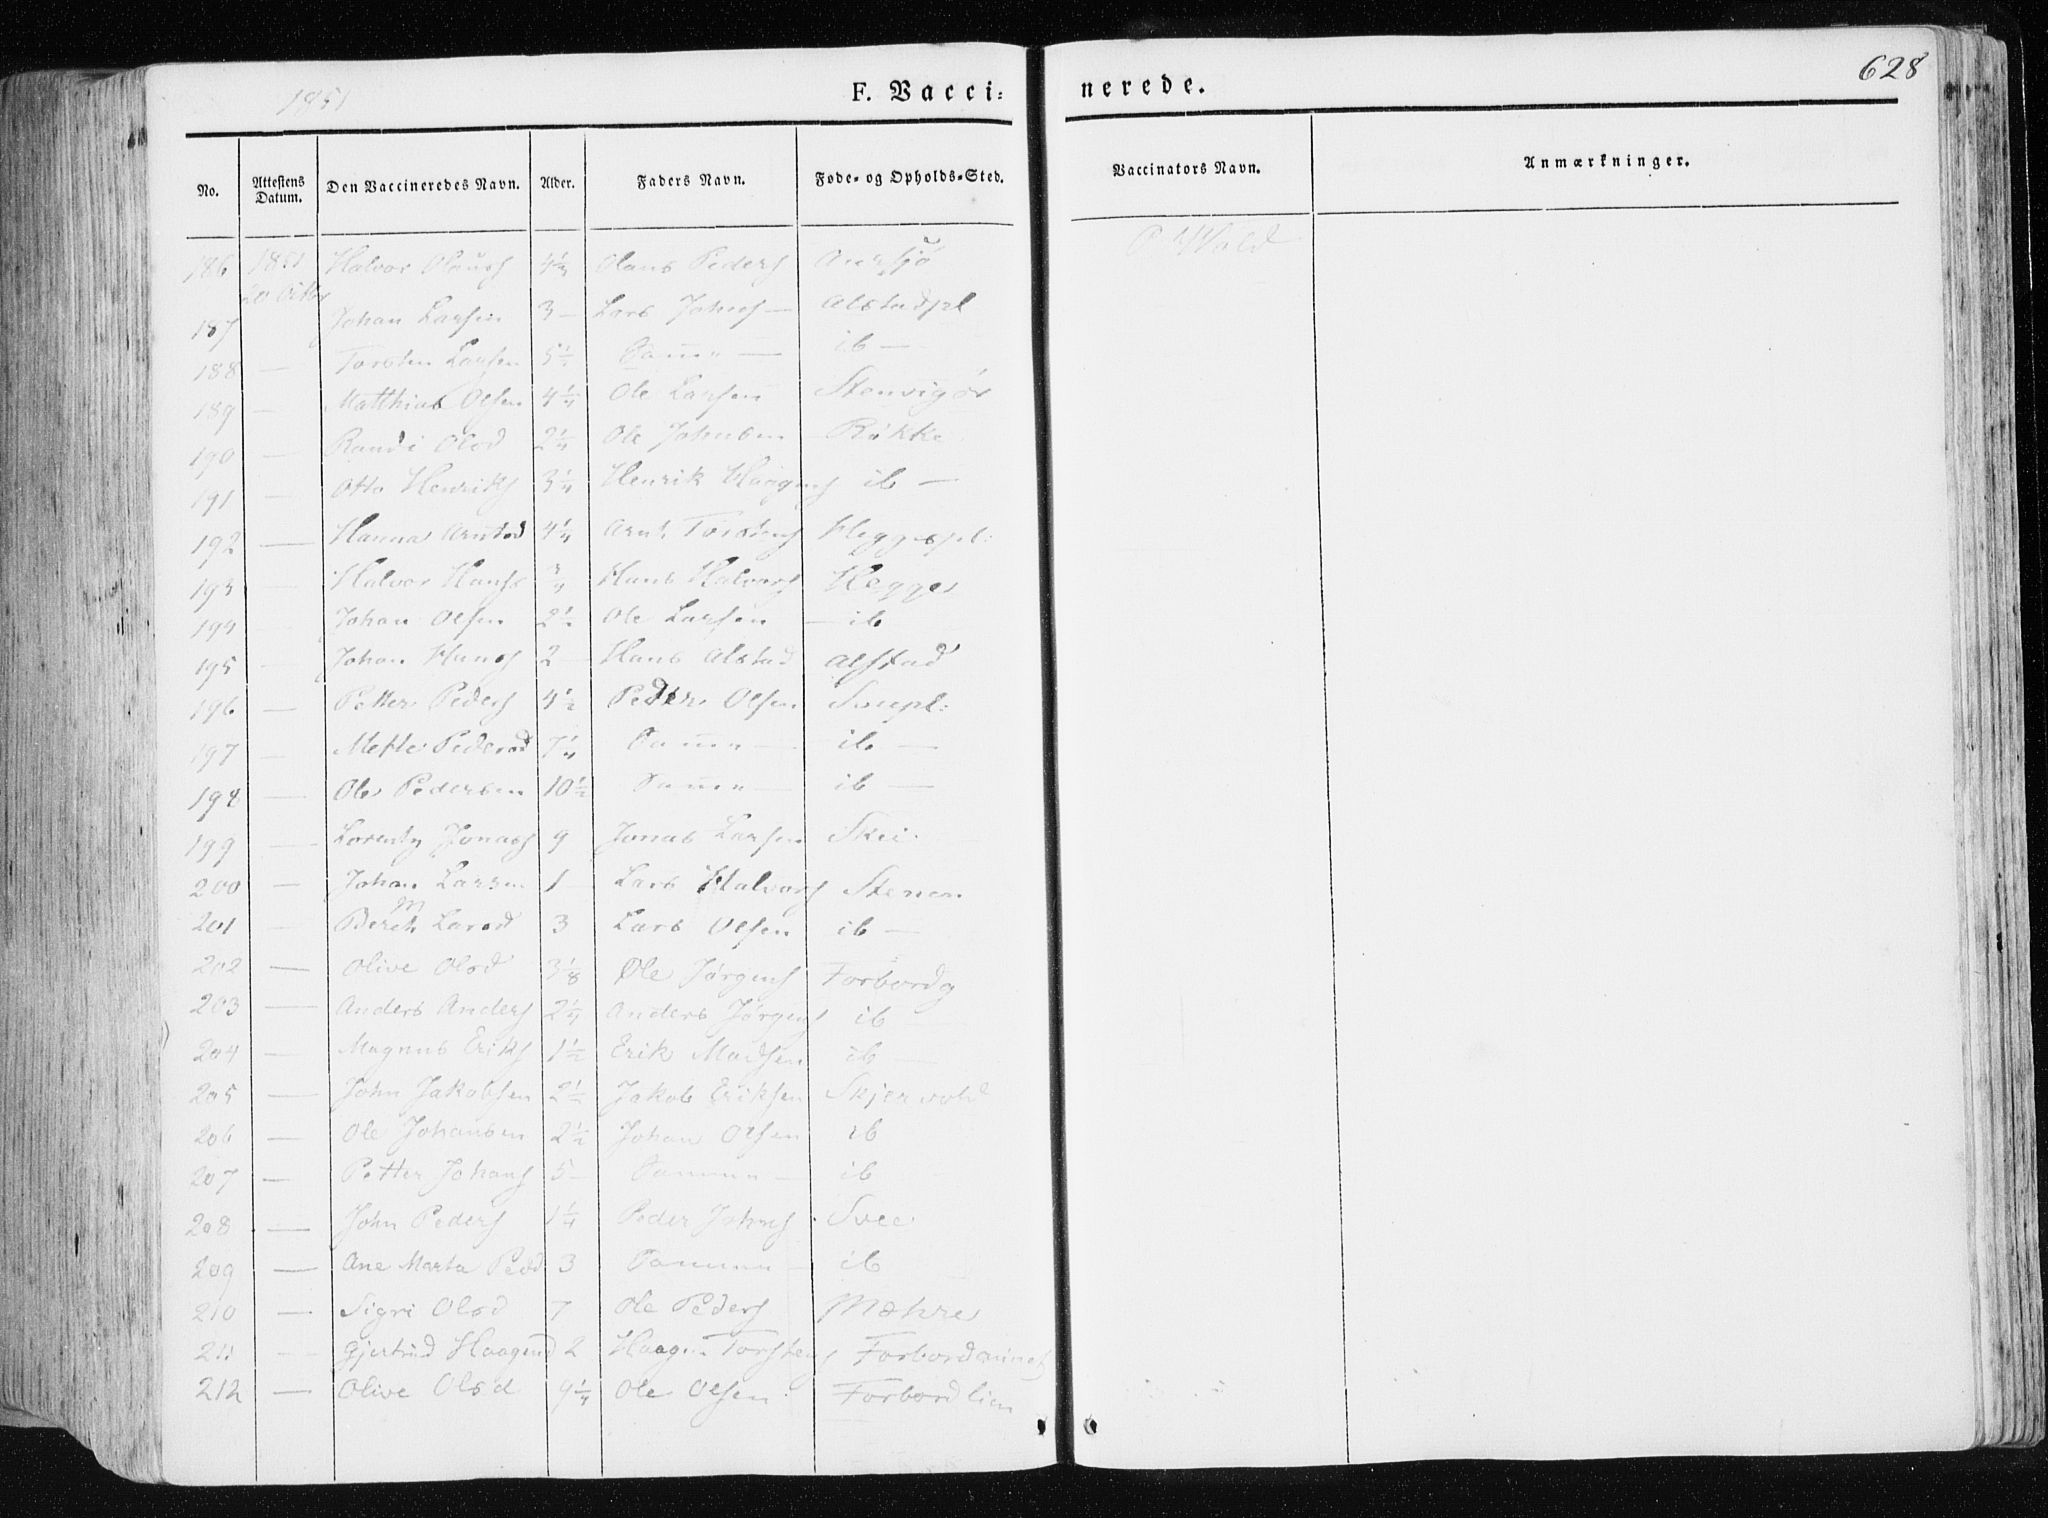 1851 F. Vacci= nerede. 628
No. Attestens Datum. Den Vaccineredes Navn. Alder. Faders Navn. Føde- og Opholds-Sted. Vaccinators Navn. Anmærkninger.
186 1851 20 Halvor 4 Olaus Peders P Wold
187 Johan Larsen 3 — Lars Johns — Alstadpl
188 — Torsten Larsen 5½ Samme — ib —
189 — Matthias Olsen 4¼ Ole Larsen Stenvigør
190 — Randi Olsd 2¼ Ole Johnsen Røkke
191 — Otto Henriks 3¼ Henrik Haagens ib —
192 — Hanna Arntsd 4¼ Arnt Torstens Heggepl:
193 — Halvor Hanss ¾ Hans Halvors Hegge
194 — Johan Olsen 2½ Ole Larsen — ib
195 — Johan Hans 2 — Hans Alstad Alstad
196 — Petter Peders 4½ Peder Olsen
197 — Mette Pedersd 7¼ Samme — ib —
198 — Ole Pedersen 10½ Samme — ib —
199 — Lorents Jonass 9 Jonas Larsen Skei
200 — Johan Larsen 1 — Lars Halvors Stenen
201 — Bereth M Larsd 3 Lars Olsen ib —
202 — Olive Olsd 3⅛ Ole Jørgens Forbordg
203 — Anders Anders 2¼ Anders Jørgens ib —
204 — Magnus Eriks 1½ Erik Madsen ib —
205 — John Jakobsen 2½ Jakob Eriksen Skjervold
206 — Ole Johansen 2½ Johan Olsen ib
207 — Petter Johans 5 — Samme — ib
208 — John Peders 1¼ Peder Johns Svee
209 — Ane Marta Pedd 3 Samme — ib
210 — Sigri Olsd 7 Ole Peders Mæhre
211 — Gjertrud Haagensd 2 Haagen Torstens
212 — Olive Olsd 9¼ Ole Olsen Forbordlien